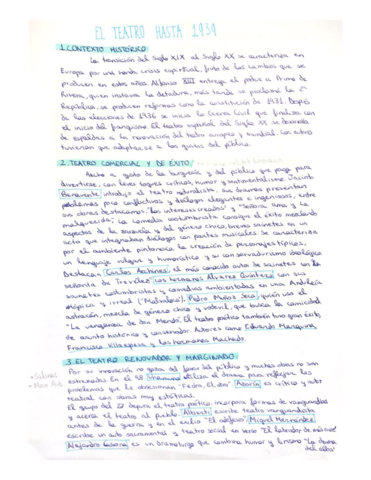 EL TEATRO HASTA 1939
1. CONTEXTO HISTÓRICO
La transición del Siglo XIX al Siglo XX se caracteriza en
Europa por una honda crisis espiritual, fruto de los cambios que se
producen en estos años. Alfonso XIII entrega el poder a Primo de
Rivera, quien instaura la dictadura, más tarde se proclama la 2ª
República, se producen reformas como la constitución de 1931. Después
de las elecciones de 1936 se inicia la Guerra Civil que finaliza con
el inicio del franquismo. El teatro español del Siglo XX se desarrolla
de espaldas a la renovación del teatro europeo y mundial. Los autores
tuvieron que adaptarse a los gustos del público.
2. TEATRO COMERCIAL Y DE ÉXITO
Hecho a gusto de la burguesía y del público que paga para
divertirse, con leves toques críticos, humor y sentimentalismo. Jacinto
Benavente introdujo el teatro naturalista, sus dramas presentan
problemas poco conflictivos y diálogos elegantes e ingeniosos, entre
sus obras destacamos "Los intereses creados" y "Señora Ama y La
malquerida". La comedia costumbrista consigue el éxito mezclando
aspectos de la zarzuela y del género chico, breves sainetes en un
acto que integraban diálogos con partes musicales. Se caracteriza
por el ambiente pintoresco, la creación de personajes típicos,
un lenguaje vulgar y humorístico y su conservadurismo ideológico
Destacan: Carlos Arniches, el más conocido autor de sainetes con La
señorita de Trevélez. Los hermanos Álvarez Quintero con sus
sainetes costumbristas y comedias ambientadas en una Andalucía
tópica y irreal ("Malvaloca"). Pedro Muñoz Seca, quien con el
astracán, mezcla de género chico y vodevil, que busca la comicidad
"La venganza de Don Mendo". El teatro poético también tuvo gran éxito,
de asunto histórico y conservador. Autores como Eduardo Marquina,
Francisco Villaespesa y los hermanos Machado.
3. EL TEATRO RENOVADOR Y MARGINADO
Por su innovación no gozó del favor del público y muchas obras no son
estrenadas. En el 98 Unamuno utiliza el drama para reflejar los
problemas que le obsesionan "Fedra, El otro". Azorín es crítico y autor
teatral con obras muy estáticas.
El grupo del 27 depura el teatro poético, incorpora formas de vanguardia
y acerca el teatro al pueblo. Alberti escribe teatro vanguardista
antes de la guerra y en el exilio "El adefesio". Miguel Hernández
escribe un auto sacramental y teatro social en verso "El labrador de más aire"
Alejandro Casona es un dramaturgo que combina humor y lirismo "La dama
del alba"